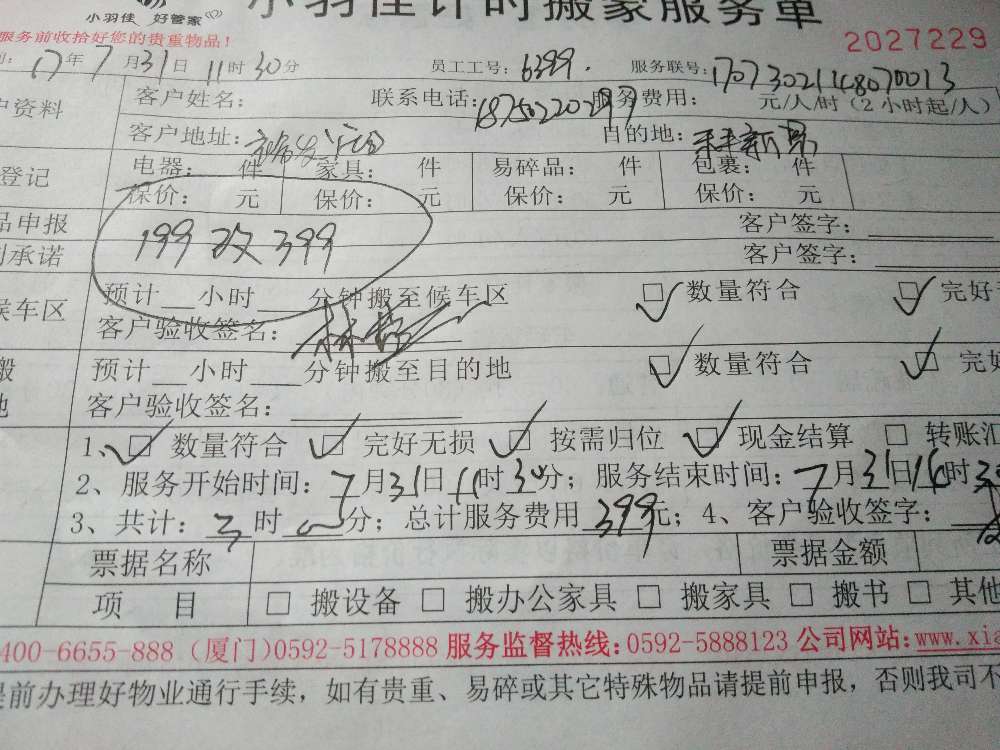 小羽佳 好管家
小羽佳计时搬家服务单
服务前收拾好您的贵重物品!
2027229
17年7月31日11时30分 员工工号:6399. 服务联号:17073021148070013
户资料 客户姓名: 联系电话: 服务费用: 元/人/时(2小时起/人)
客户地址: 目的地:
登记 电器: 件 家具: 件 易碎品: 件 包裹: 件
保价: 元 保价: 元 保价: 元 保价: 元
品申报 199改399 客户签字:
承诺 客户签字:
候车区 预计 小时 分钟搬至候车区 数量符合 完好
客户验收签名: 林
搬 预计 小时 分钟搬至目的地 数量符合 完好
地 客户验收签名:
1、 数量符合 完好无损 按需归位 现金结算 转账汇
2、服务开始时间:7月31日11时30分;服务结束时间:7月31日16时
3、共计: 时 分;总计服务费用399元;4、客户验收签字:
票据名称 票据金额
项 目 搬设备 搬办公家具 搬家具 搬书 其他
400-6655-888 (厦门)0592-5178888 服务监督热线:0592-5888123 公司网站:www.xia
提前办理好物业通行手续,如有贵重、易碎或其它特殊物品请提前申报,否则我司不